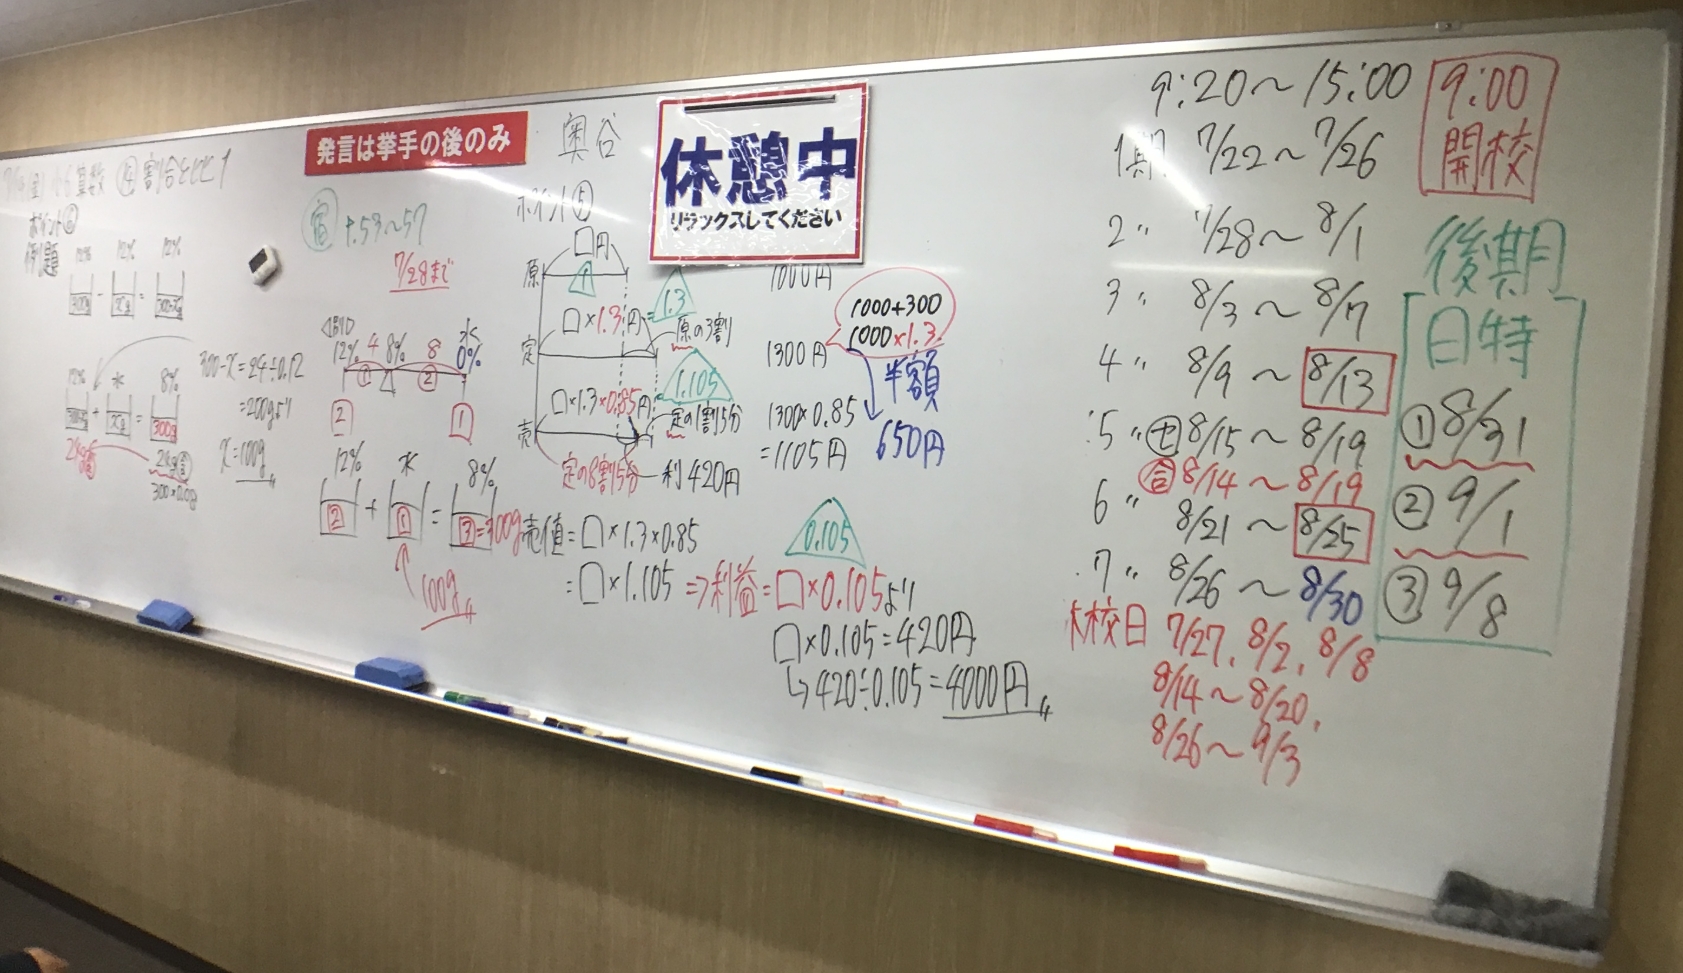 小6算数 ④ 割合と比 1
例題
12% 12% 12%
300g - xg = 300-xg
300-x=24÷0.12
=200gより
x=100g
12% 水 8%
xg + = 300g
24g
24g
300×0.08
発言は挙手の後のみ
宿 t.53~57
7/28まで
〈別〉
12% 4 8% 8 水 0%
① ②
2 1
12% 水 8%
2 + 1 = 3=300g
100g
奥谷
ポイント⑤
□円
原 1
□×1.3円 1.3
原の3割
定
□×1.3×0.85円 1.105
定の1割5分
売
定の8割5分 利420円
売値=□×1.3×0.85
=□×1.105⇒利益=□×0.105より
0.105
□×0.105=420円
↳420÷0.105=4000円
休憩中
リラックスしてください
1000円
1000+300
1000×1.3
1300円
半額
650円
1300×0.85
=1105円
9:20~15:00
9:00
開校
1期 7/22~7/26
2〃 7/28~8/1
3〃 8/3~8/7
4〃 8/9~8/13
5〃 ㊆ 8/15~8/19
合 8/14~8/19
6〃 8/21~8/25
7〃 8/26~8/30
休校日 7/27、8/2、8/8
8/14~8/20、
8/26~9/3
後期
日特
①8/31
②9/1
③9/8